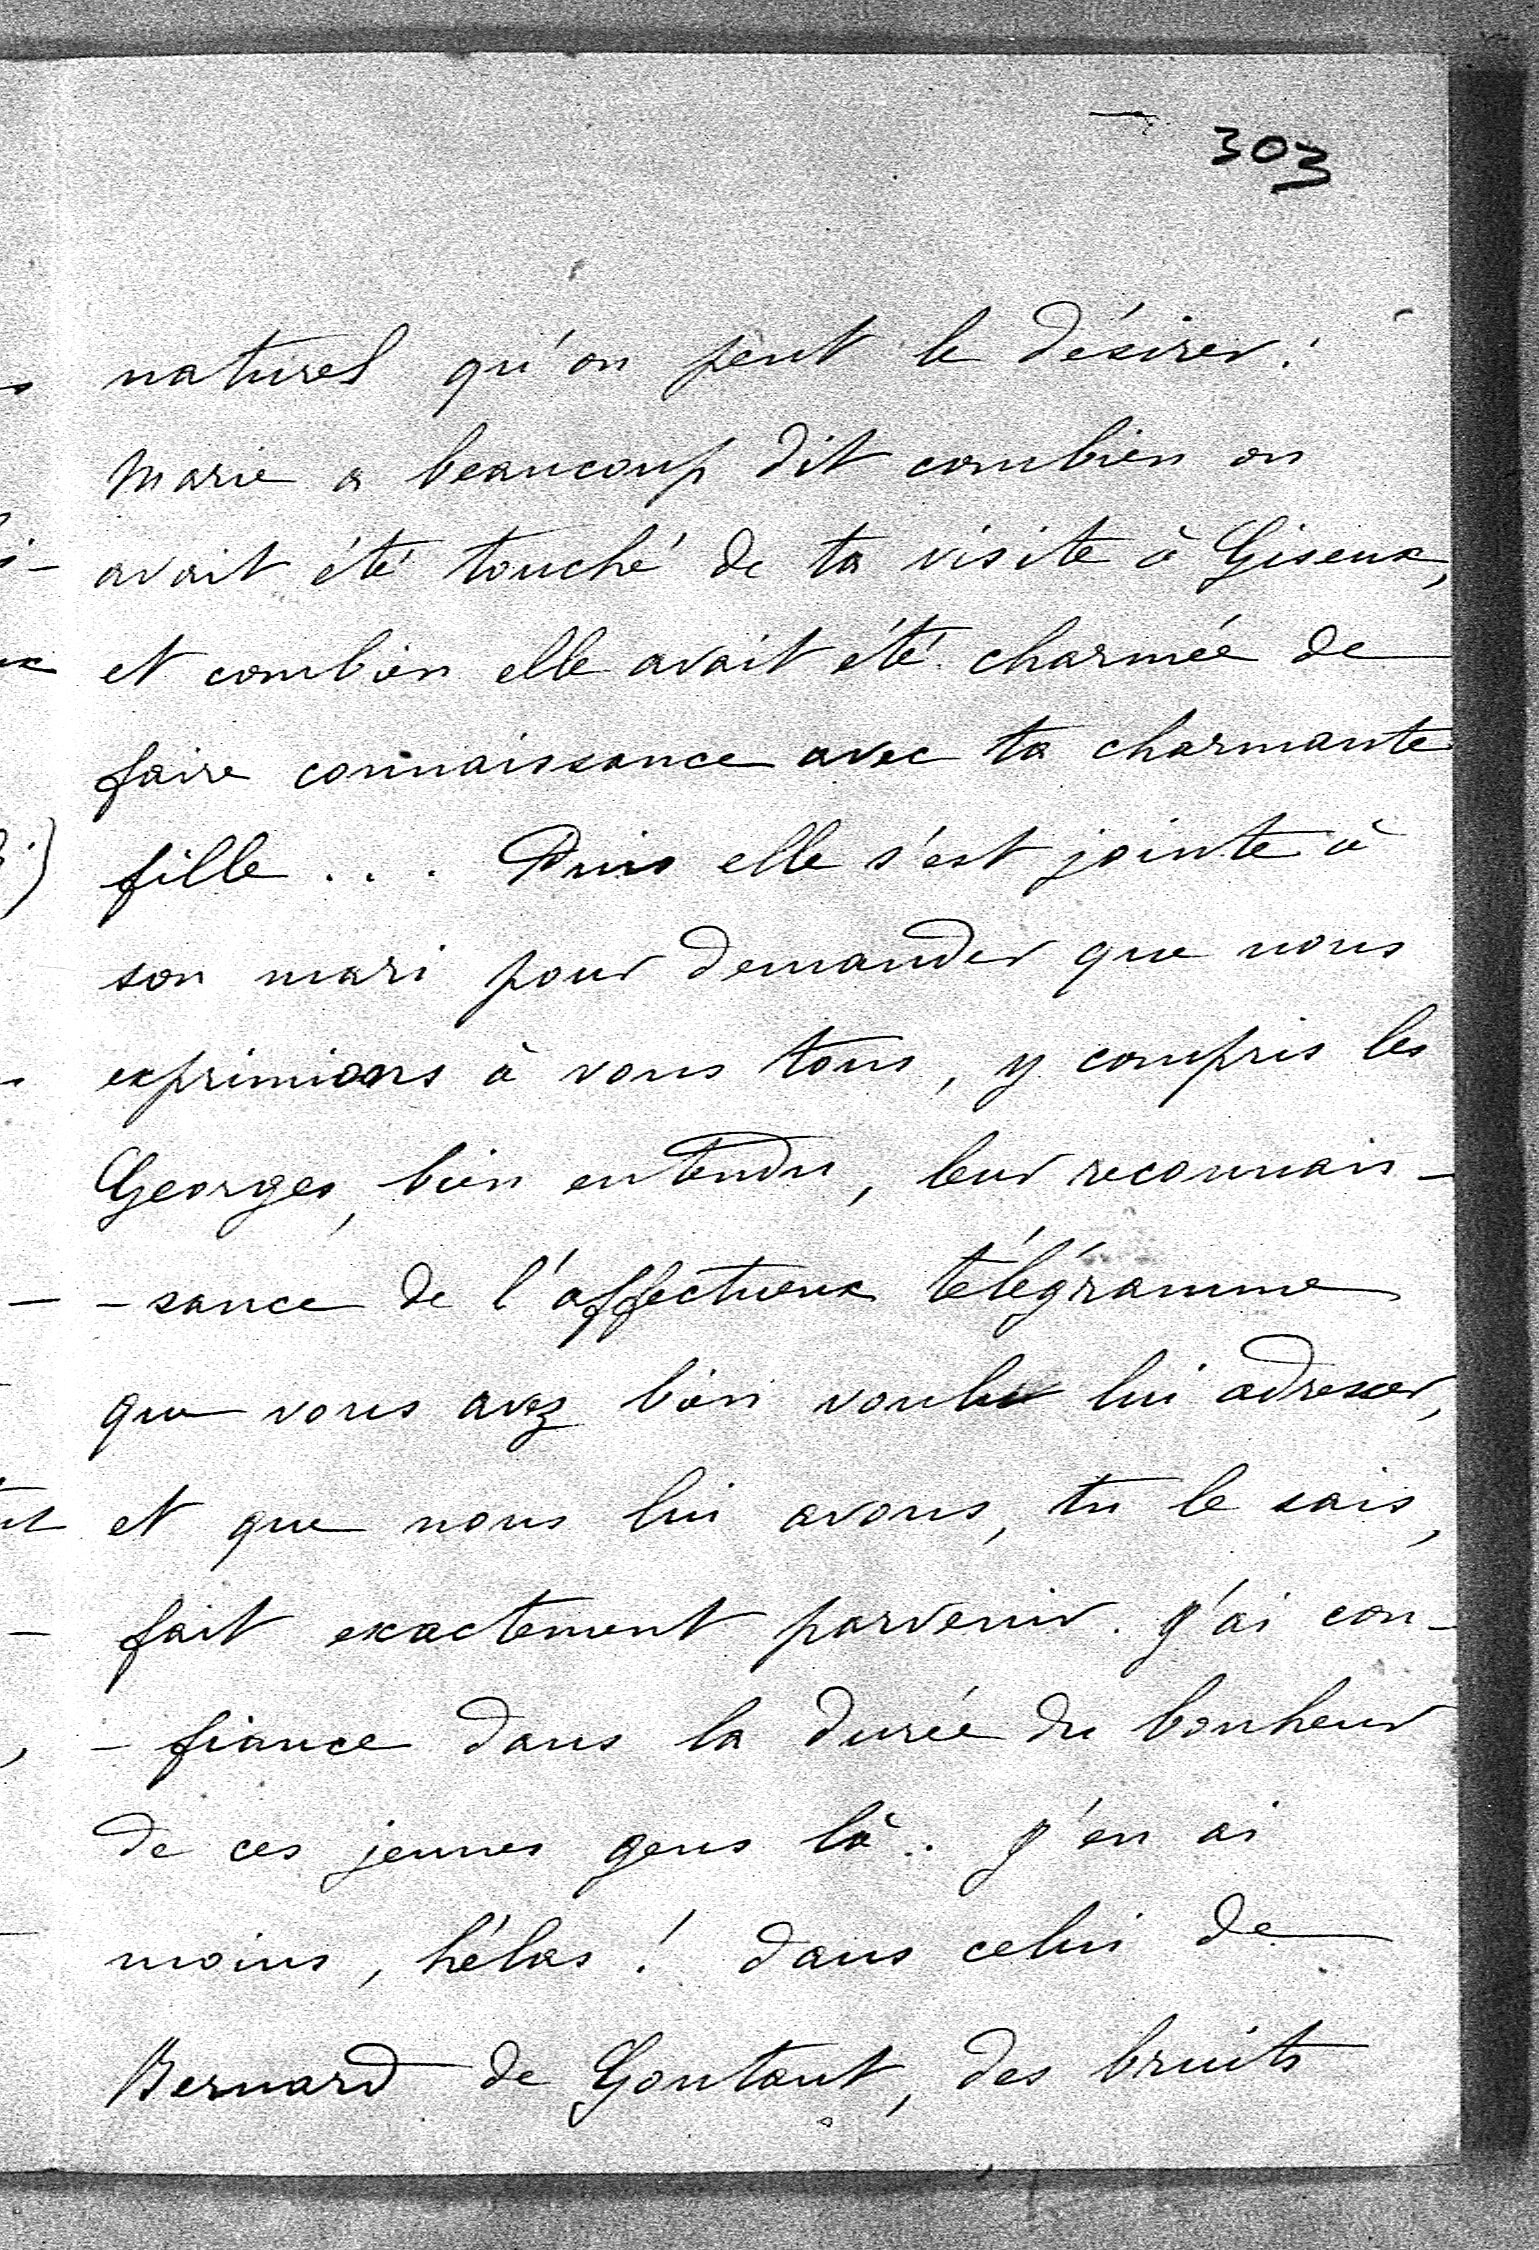 303
naturel qu'on peut le désirer.
Marie a beaucoup dit combien on
avait été touché de ta visite à Giseux,
et combien elle avait été charmée de
faire connaissance avec ta charmante
fille... Puis elle s'est jointe à
son mari pour demander que nous
exprimions à vous tous, y compris les
Georges, bien entendu, leur reconnais-
-sance de l'affectueux télégramme
que vous avez bien voulu lui adresser,
et que nous lui avons, tu le sais,
fait exactement parvenir. J'ai con-
-fiance dans la durée du bonheur
de ces jeunes gens là. J'en ai
moins, hélas ! dans celui de
Bernard de Gontaut, des bruits